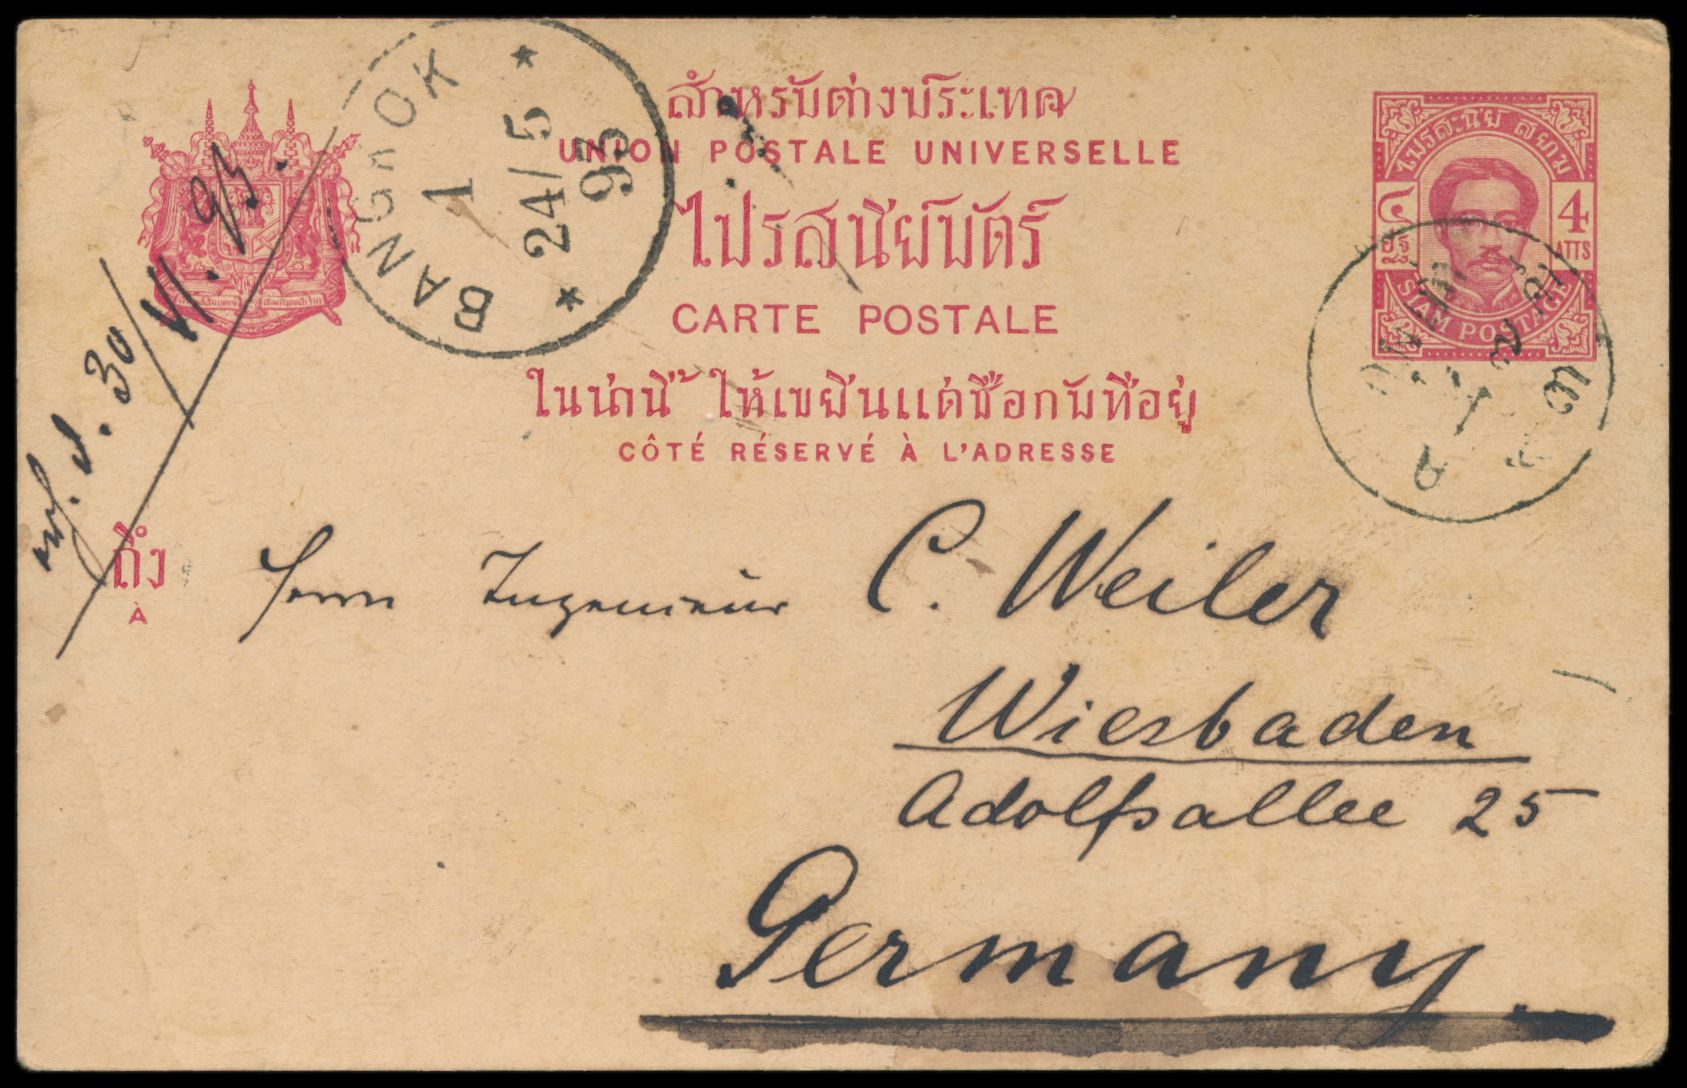 สำหรับต่างประเทศ
UNION POSTALE UNIVERSELLE
ไปรสนียบัตร์
CARTE POSTALE
ในน่านี้ ให้เขยีนแต่ชื่อกับที่อยู่
CÔTÉ RÉSERVÉ À L'ADRESSE
BANGKOK
1
24/5
93
ไปรสะนีย สยาม
๔ 4
ATTS
SIAM POSTAGE
30/VI. 93.
ถึง
À
Herrn Ingenieur C. Weiler
Wiesbaden
Adolfsallee 25
Germany